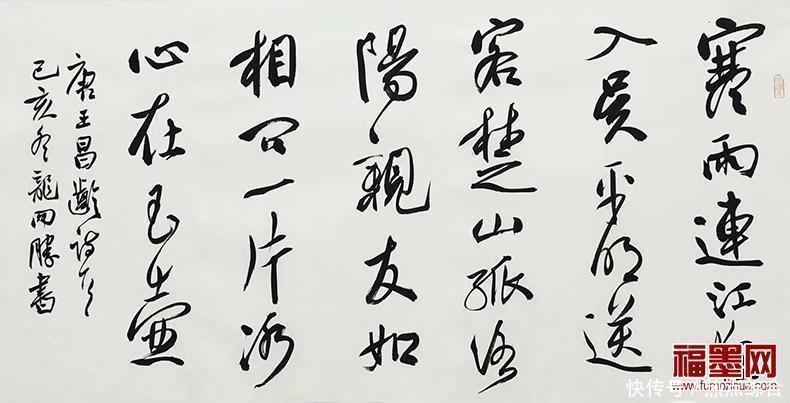 寒雨連江
入吳平明送
客楚山孤洛
陽親友如
相问一片冰
心在玉壺
唐王昌齡詩
己亥冬龍勝書
福墨网
www.fumozihua.com
快传号